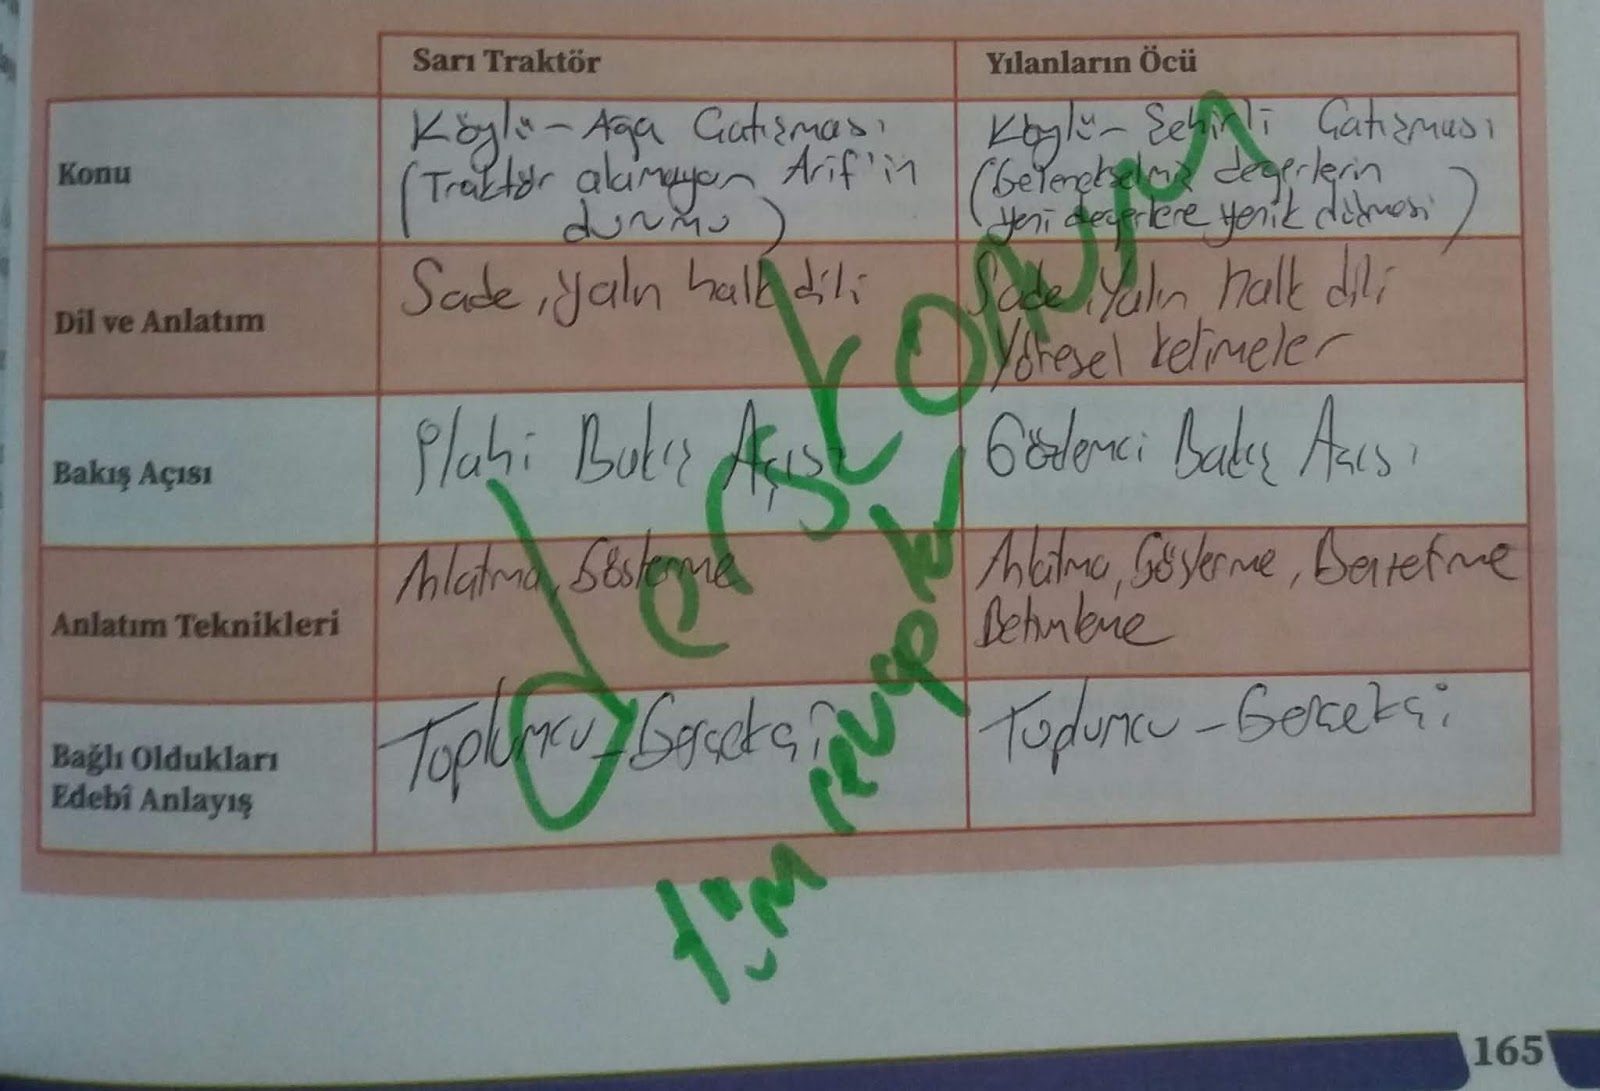 Sarı Traktör
Yılanların Öcü
Konu
Köylü - Aga Çatışması
(Traktör alamayan Arif'in
durumu)
Köylü - Şehirli Çatışması
(Geleneksel değerlerin
yeni değerlere yenik düşmesi)
Dil ve Anlatım
Sade, yalın halk dili
Sade, Yalın halk dili
Yöresel kelimeler
Bakış Açısı
İlahi Bakış Açısı
Gözlemci Bakış Açısı
Anlatım Teknikleri
Anlatma, Gösterme
Anlatma, Gösterme,
Betimleme
Bağlı Oldukları
Edebî Anlayış
Toplumcu - Gerçekçi
Toplumcu - Gerçekçi
derskonum
tüm cevapları
165